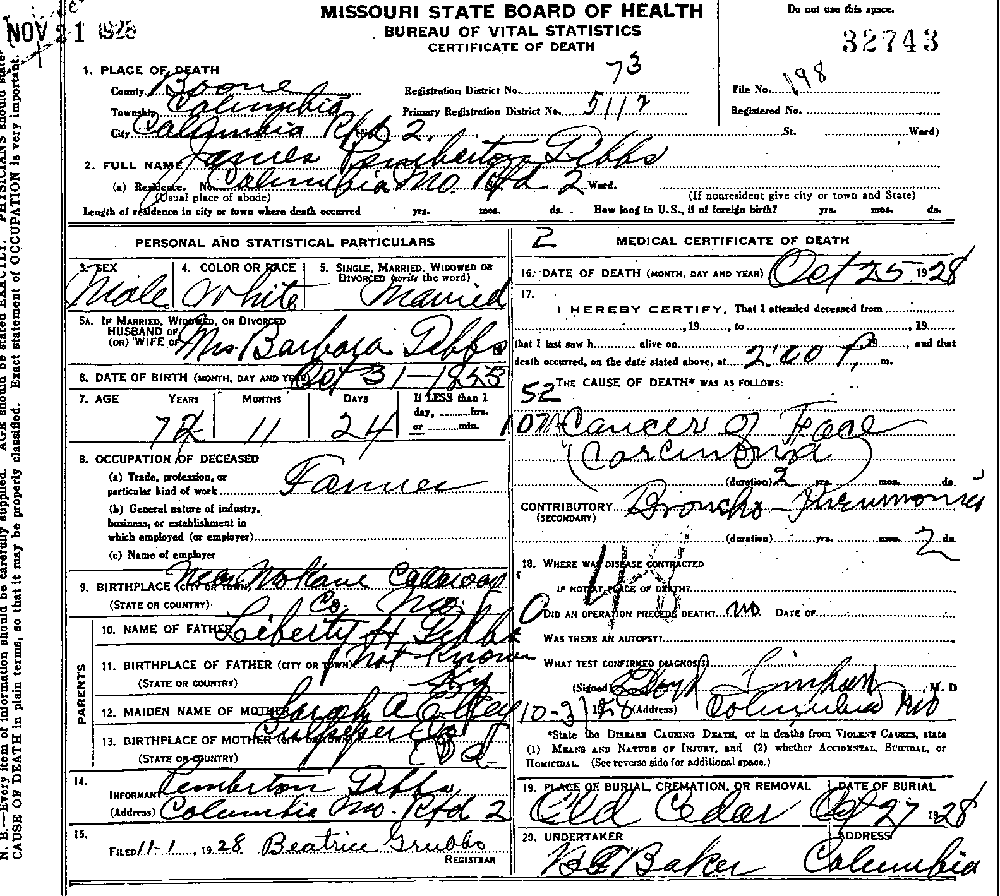 NOV 21 1928
MISSOURI STATE BOARD OF HEALTH
BUREAU OF VITAL STATISTICS
CERTIFICATE OF DEATH
Do not use this space.
32743
1. PLACE OF DEATH
County Boone Registration District No. 73 File No. 198
Township Columbia Primary Registration District No. 5117 Registered No.
City Columbia Rfd 2. St. Ward)
2. FULL NAME James Pemberton Tibbs
(a) Residence. No. Columbia Mo. Rfd 2 Ward.
(Usual place of abode) (If nonresident give city or town and State)
Length of residence in city or town where death occurred yrs. mos. ds. How long in U.S., if of foreign birth? yrs. mos. ds.
PERSONAL AND STATISTICAL PARTICULARS
3. SEX 4. COLOR OR RACE 5. SINGLE, MARRIED, WIDOWED OR DIVORCED (write the word)
Male White Married
5A. IF MARRIED, WIDOWED, OR DIVORCED
HUSBAND OF
(OR) WIFE OF Mrs Barbara Tibbs
6. DATE OF BIRTH (MONTH, DAY AND YEAR) Oct 31-1855
7. AGE YEARS MONTHS DAYS If LESS than 1
day, hrs.
or min.
72 11 24
8. OCCUPATION OF DECEASED
(a) Trade, profession, or
particular kind of work Farmer
(b) General nature of industry,
business, or establishment in
which employed (or employer)
(c) Name of employer
9. BIRTHPLACE (CITY OR TOWN) Near Mokane Callaway
(STATE OR COUNTRY) Co. Mo.
PARENTS
10. NAME OF FATHER Liberty H Tibbs
11. BIRTHPLACE OF FATHER (CITY OR TOWN) Not Known
(STATE OR COUNTRY) Ky
12. MAIDEN NAME OF MOTHER Sarah A
13. BIRTHPLACE OF MOTHER (CITY OR TOWN) Culpeper Co
(STATE OR COUNTRY)
14.
INFORMANT Pemberton Tibbs
(Address) Columbia Mo. Rfd 2
15.
FILED 11-1, 1928 Beatrice Grubbs
REGISTRAR
2 MEDICAL CERTIFICATE OF DEATH
16. DATE OF DEATH (MONTH, DAY AND YEAR) Oct 25 1928
17.
I HEREBY CERTIFY, That I attended deceased from
, 19 , to , 19
that I last saw h alive on , and that
death occurred, on the date stated above, at 2:00 P. m.
THE CAUSE OF DEATH* WAS AS FOLLOWS:
52
Cancer of Face
(Carcinoma)
(duration) 2 yrs. mos. ds.
CONTRIBUTORY Broncho-Pneumonia
(SECONDARY)
(duration) yrs. mos. 2
18. WHERE WAS DISEASE CONTRACTED
IF NOT AT PLACE OF DEATH?
48
DID AN OPERATION PRECEDE DEATH? no DATE OF
WAS THERE AN AUTOPSY?
WHAT TEST CONFIRMED DIAGNOSIS?
(Signed) Lloyd Simpson M. D
10-31 1928 (Address) Columbia Mo
*State the DISEASE CAUSING DEATH, or in deaths from VIOLENT CAUSES, state
(1) MEANS AND NATURE OF INJURY, and (2) whether ACCIDENTAL, SUICIDAL, or
HOMICIDAL. (See reverse side for additional space.)
19. PLACE OF BURIAL, CREMATION, OR REMOVAL DATE OF BURIAL
Old Cedar Oct 27 1928
20. UNDERTAKER ADDRESS
Baker Columbia
N. B.—Every item of information should be carefully supplied. AGE should be stated EXACTLY. PHYSICIANS should state
CAUSE OF DEATH in plain terms, so that it may be properly classified. Exact statement of OCCUPATION is very important.